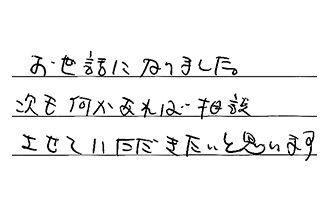 お世話になりました。
次も何かあれば相談
させていただきたいと思います